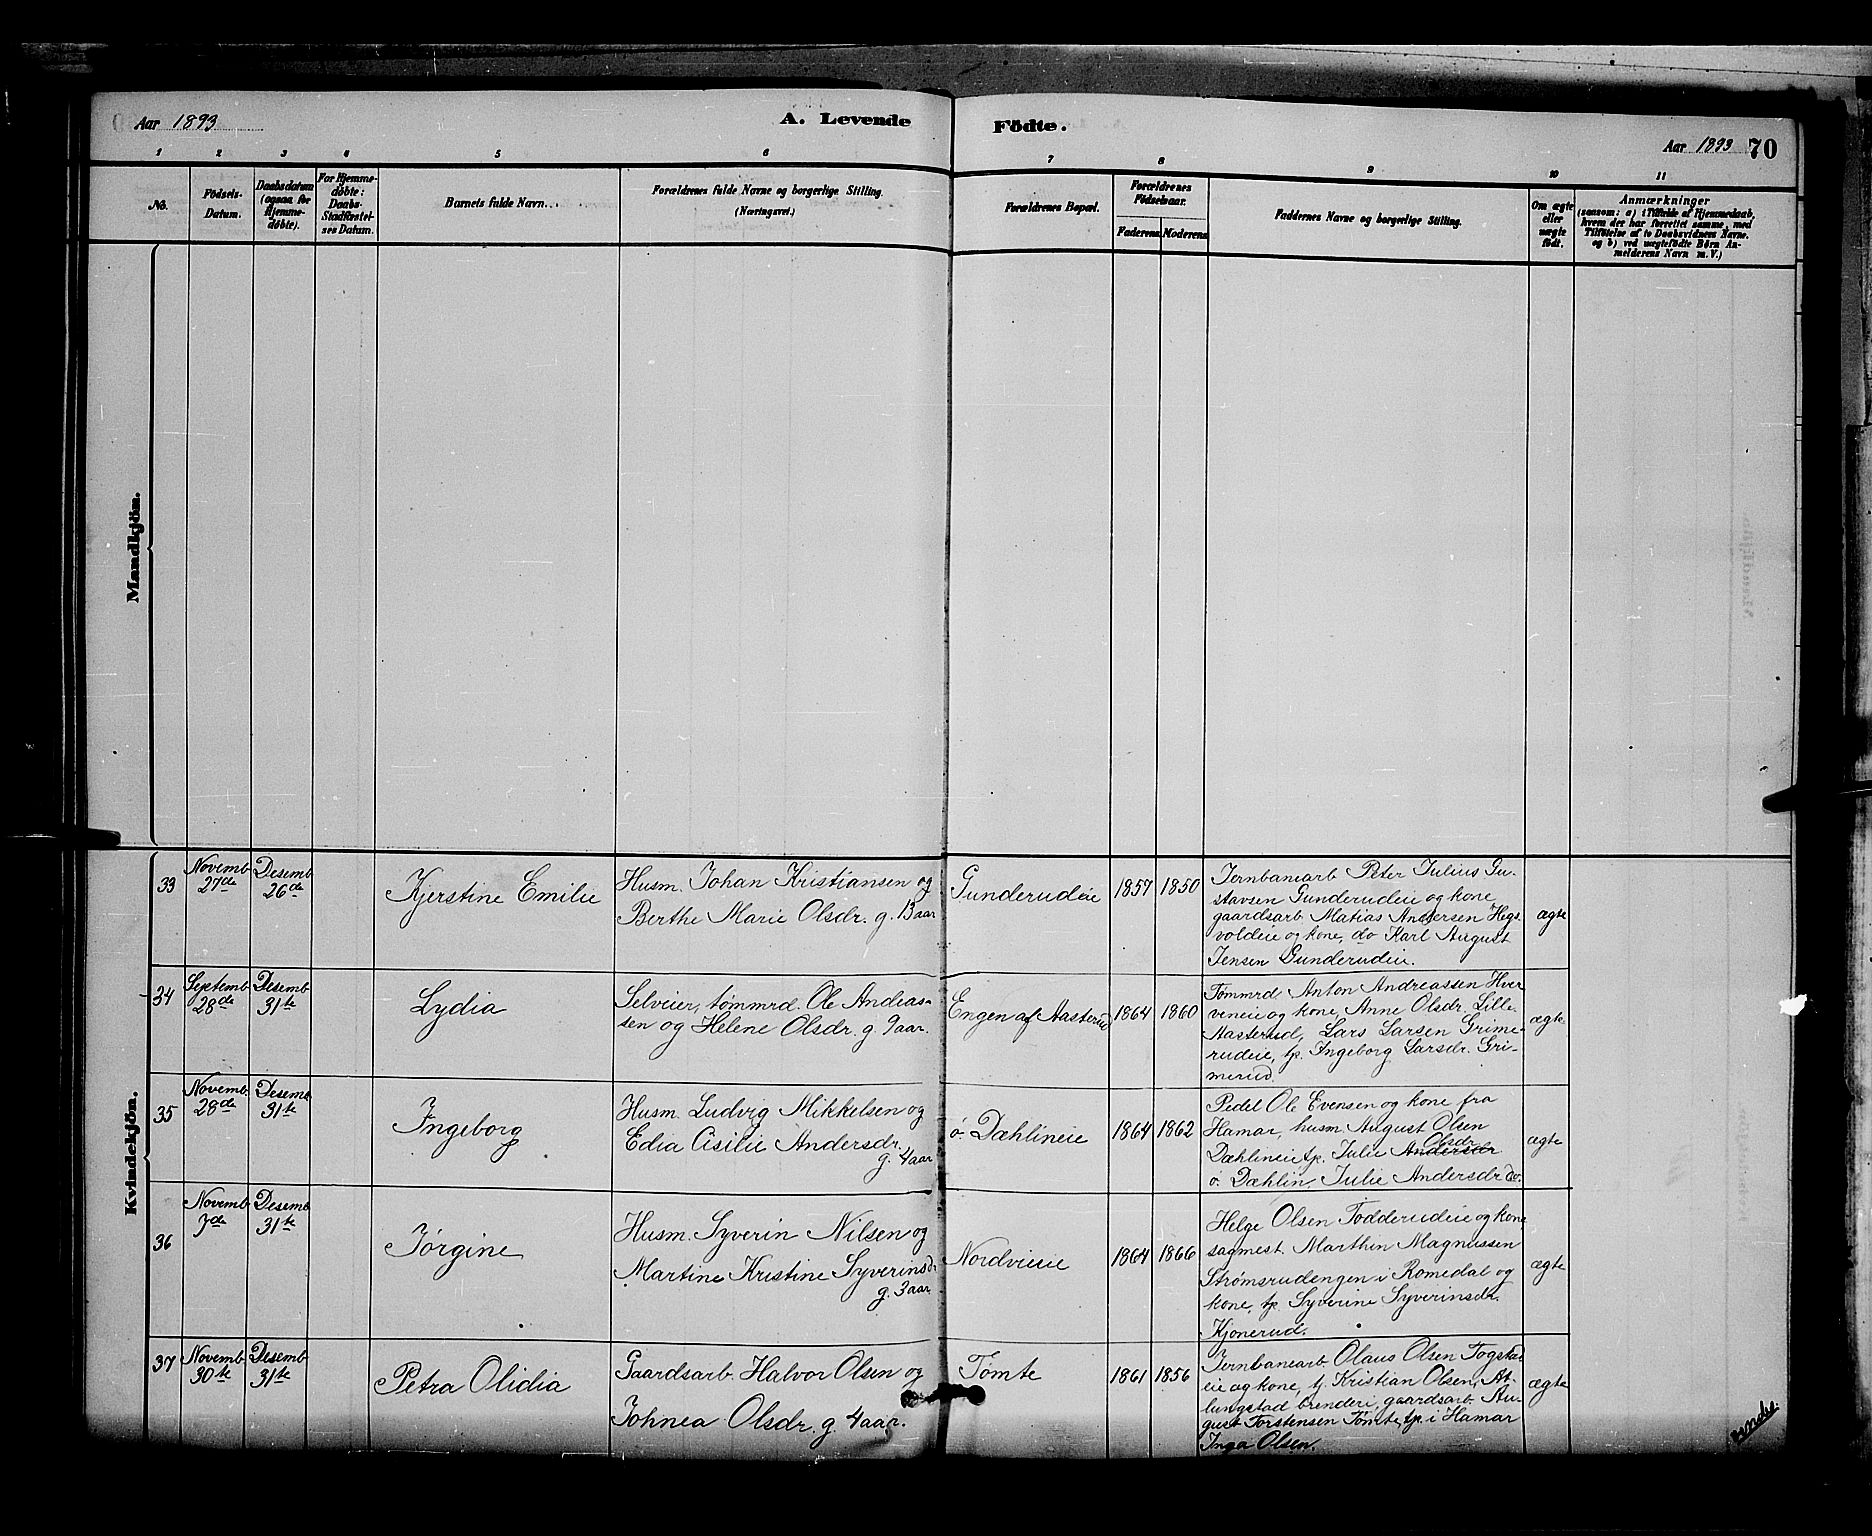 Aar 1893
A. Levende
Födte.
Aar 1893 70
1 2 3 4 5 6 7 8 9 10 11
No.
Födsels-
Datum.
Daabsdatum
(ogsaa for
Hjemme-
døbte).
For Hjemme-
døbte:
Daabs-
Stadfæstel-
ses Datum.
Barnets fulde Navn.
Forældrenes fulde Navne og borgerlige Stilling.
(Næringsvei.)
Forældrenes Bopæl.
Forældrenes
Födselsaar.
Faderens. Moderens.
Faddernes Navne og borgerlige Stilling.
Om ægte
eller
uægte
født.
Anmærkninger
(saasom: a) i Tilfælde af Hjemmedaab,
hvem der har forrettet samme, med
Tilføielse af to Daabsvidners Navne.
og b) ved uægtefødte Børn An-
melderens Navn m. V.)
Mandkjön.
Kvindekjön.
33
Novemb.
27de
Desemb
26de
Kjerstine Emilie
Husm. Johan Kristiansen og
Berthe Marie Olsdr. g. 13 aar
Gunderudeie
1857 1850
Jernbanearb Peter Julius Gu-
stavsen Gunderudeie og kone
gaardsarb. Matias Andersen Hegs
voldeie og kone, do Karl August
Jensen Gunderudeie.
ægte
34
Septemb
28de
Desemb
31te
Lydia
Selveier, tømmrd. Ole Andreas-
sen og Helene Olsdr. g. 9aar.
Engen af Aasterud
1864 1860
Tømmrd. Anton Andreassen Hver
veneie og kone, Anne Olsdr. Lille
Aasterud, Lars Larsen Grime-
rudeie, tp. Ingeborg Larsdr. Gri-
merud.
ægte
35
Novemb.
28de
Desemb
31te
Ingeborg
Husm. Ludvig Mikkelsen og
Edia Cisilie Andersdr.
g. 4aar
ö. Dæhlineie
1864 1862
Pedel Ole Evensen og kone fra
Hamar, husm. August Olsen
Dæhlineie tp. Julie Andersdr Olsdr
ö. Dæhlin, Julie Andersdr do.
ægte
36
Novemb
7de
Desemb
31te
Jørgine
Husm. Syverin Nilsen og
Martine Kristine Syverinsdr
g. 3aar
Nordvieie
1864 1866
Helge Olsen Todderudeie og kone
sagmest. Marthin Magnussen
Strømsrudengen i Romedal og
kone, tp. Syverine Syverinsdr.
Kjonerud.
ægte
37
Novemb
30te
Desemb
31te
Petra Olidia
Gaardsarb. Halvor Olsen og
Johnea Olsdr. g. 4aar.
Tømte
1861 1856
Jernbanearb Olaus Olsen Togstad
eie og kone, tj. Kristian Olsen, At-
lungstad brenderi, gaardsarb. Au-
gust Torstensen Tømte, tp. i Hamar
Inga Olsen.
ægte